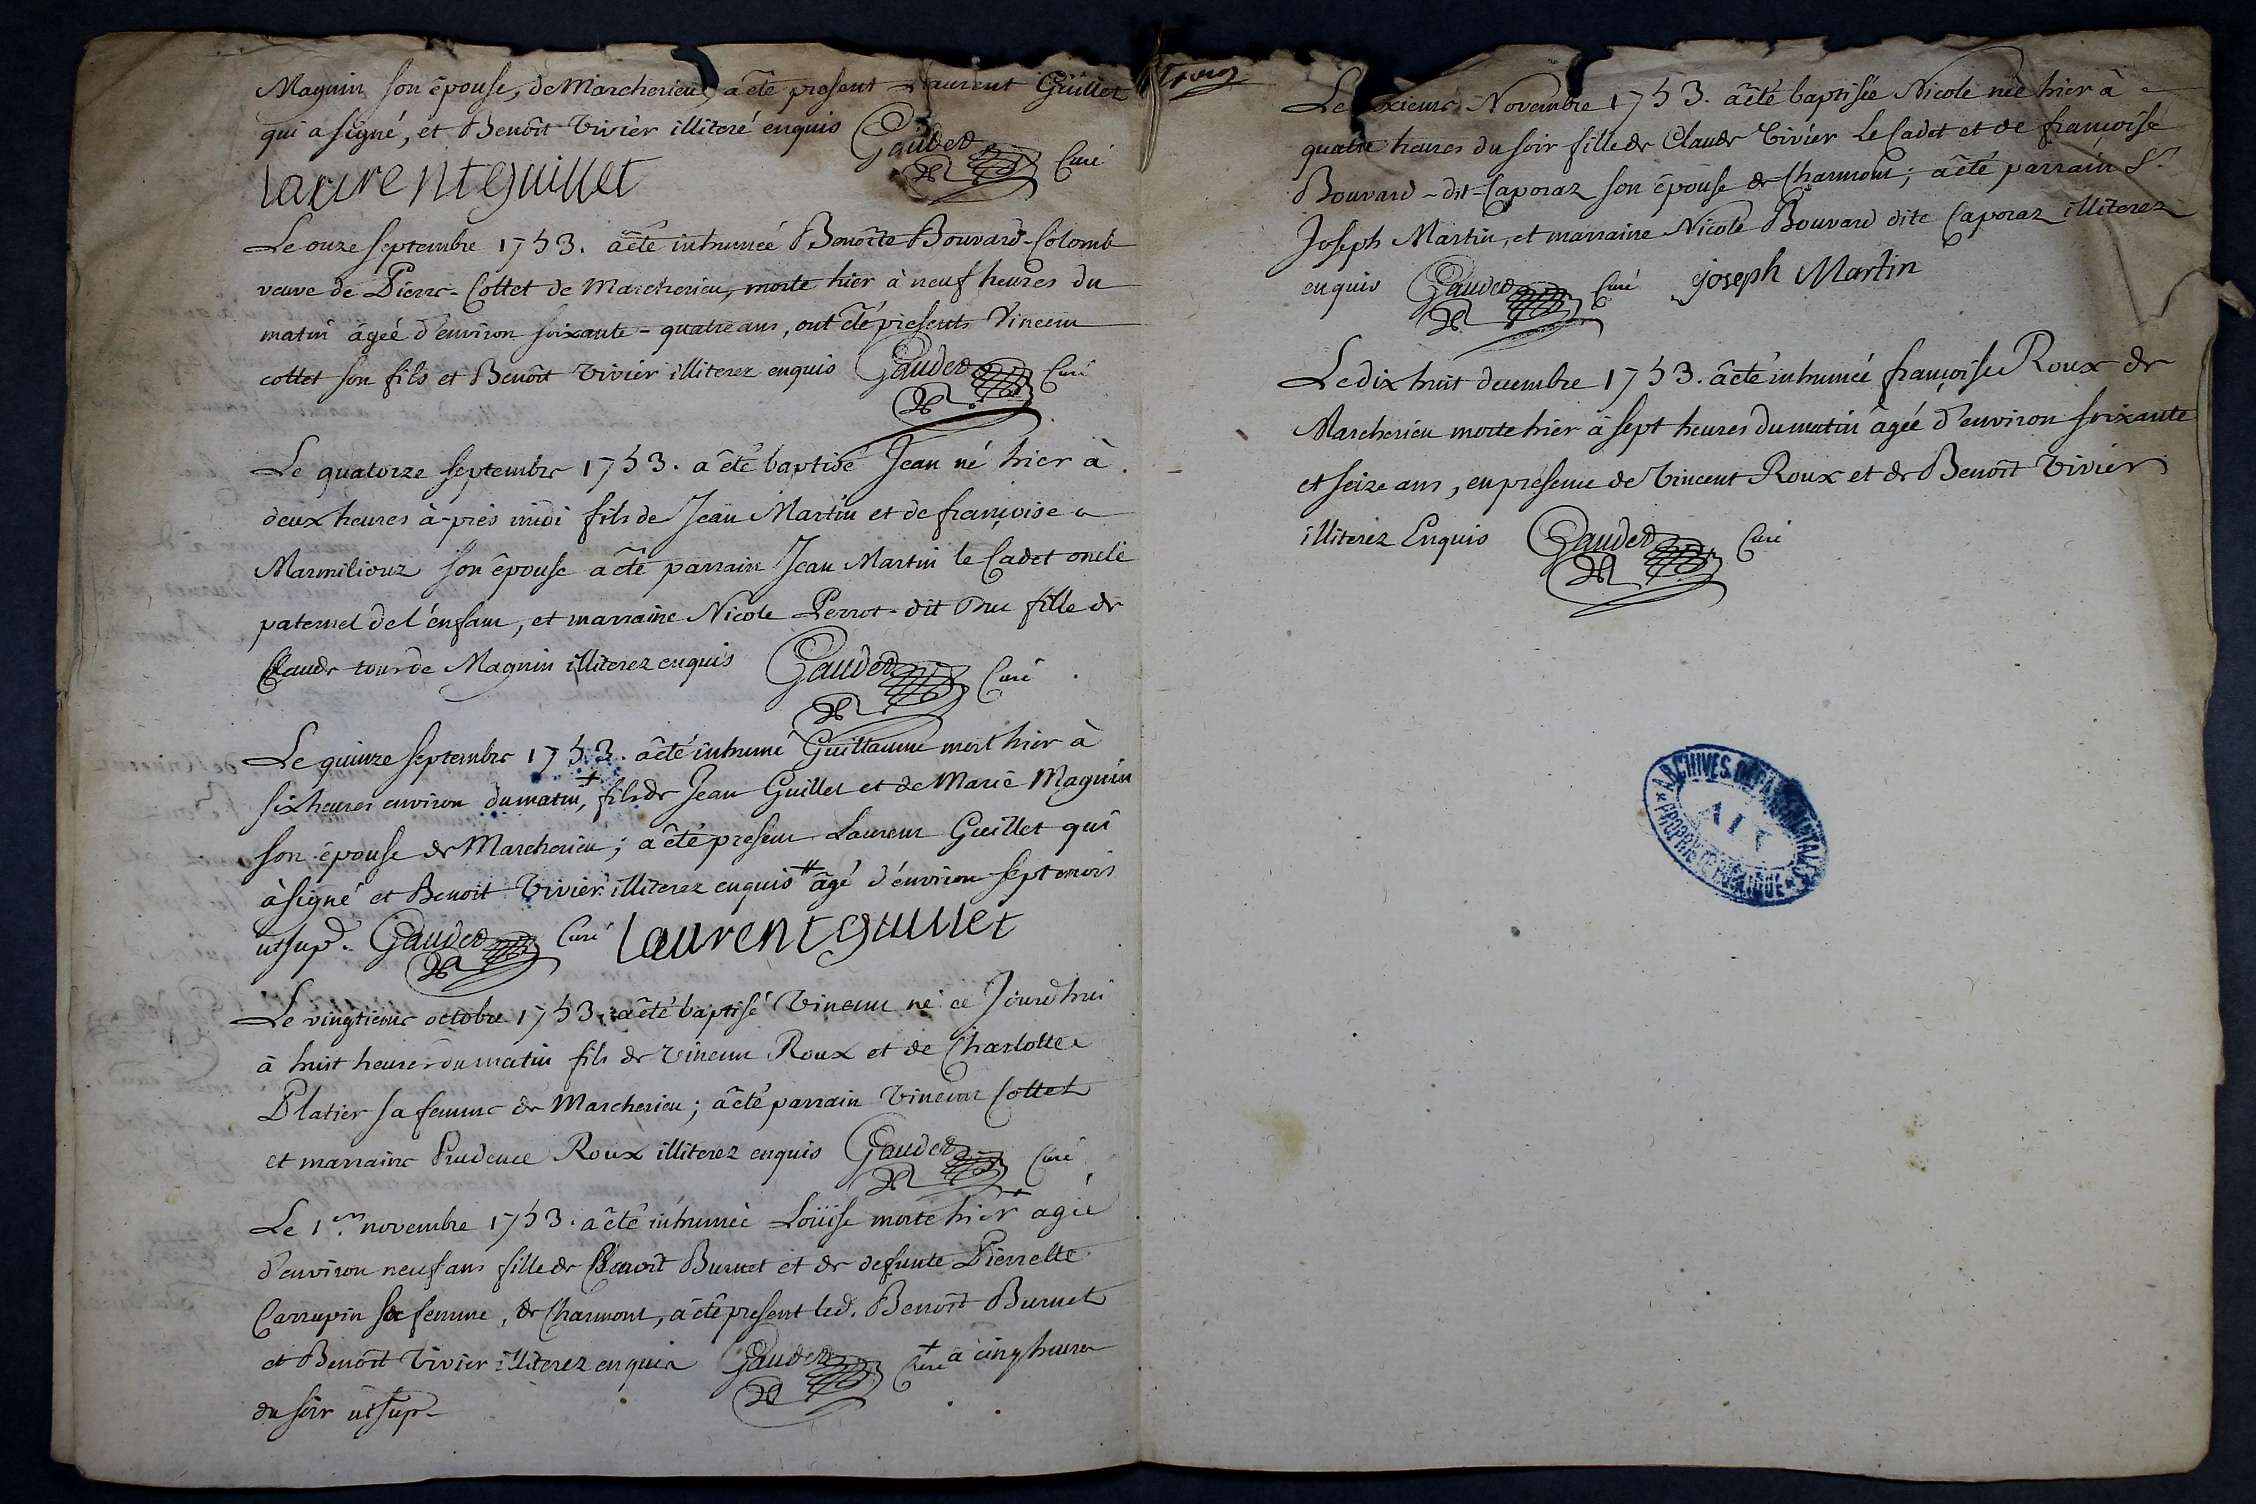 Magnin son épouse, de Marcherieu, a êté present Laurent Guillet
qui a signé, et Benôit Vivier illiteré enquis Gaudet Curé
laurent guillet
Le onze septembre 1753. a êté inhumeé Benôite Bouvard-Colomb
veuve de Pierre-Collet de Marcherieu, morte hier à neuf heures du
matin âgeé d'environ soixante-quatre ans, ont êté presents Vincent
collet son fils et Benôit Vivier illiterez enquis Gaudet Curé
Le quatorze septembre 1753. a êté baptisé Jean né hier à
deux heures à-près midi fils de Jean Martin et de françoise
Marmiliouz son épouse a êté parrain Jean Martin le Cadet oncle
paternel de l'énfant, et marraine Nicole Perrot-dit fille de
Claude tour de Magnin illiterez enquis Gaudet Curé
Le quinze septembre 1753. a êté inhumé Guillaume mort hier à
six heures environ du matin, + fils de Jean Guillet et de Marie Magnin
son épouse de Marcherieu; a êté present Laurent Guillet qui
à signé et Benoit Vivier illiterez enquis # âgé d'énviron sept mois
ut sup. Gaudet Curé laurent guillet
Le vingtieme octobre 1753. a êté baptisé Vincent né ce Jourdhui
à huit heures du matin fils de Vincent Roux et de Charlotte
Platier sa femme de Marcherieu; a êté parrain Vincent Collet
et marraine Prudence Roux illiterez enquis Gaudet Curé
Le 1er novembre 1753. a êté inhumeé Loüise morte hier + agée
d'environ neuf ans fille de Benoît Burnet et de defunte Pierrette
Carrupin sa femme, de Charmont, a êté present led. Benôit Burnet
et Benôit Vivier illiterez enquis Gaudet Curé + à cinq heures
du soir ut sup.
Le Novembre 1753. a êté baptisée Nicole neé hier à
quatre heures du soir fille de Claude Vivier Le Cadet et de françoise
Bouvard-dit-Caporaz son épouse de Charmont; a êté parrain Sr.
Joseph Martin, et marraine Nicole Bouvard dite Caporaz illiterez
enquis Gaudet Curé joseph Martin
Le dix huit decembre 1753. a êté inhumeé françoise Roux de
Marcherieu morte hier à sept heures du matin âgeé d'environ soixante
et seize ans, en presence de Vincent Roux et de Benôit Vivier
illiterez Enquis Gaudet Curé
ARCHIVES DEPARTEMENTALES
AIN
PROPRIETE PUBLIQUE